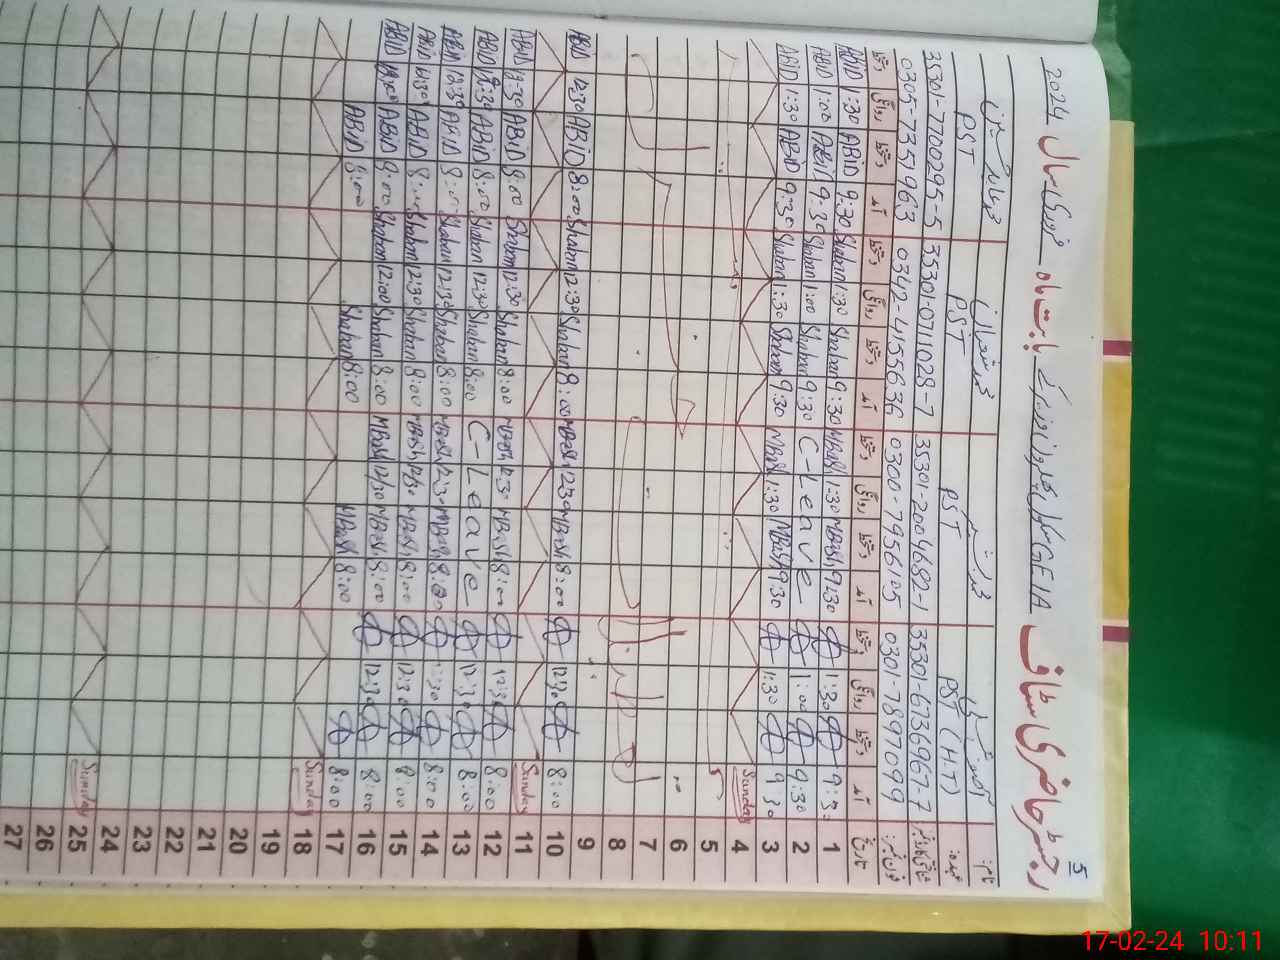 5
رجسٹر حاضری سٹاف GEIA بابت ماہ فروری سال 2024
نام:
عہدہ: PST (H.T) PST PST PST
شناختی کارڈ نمبر 35301-6736967-7 35301-2004682-1 35301-0711028-7 35301-7700295-5
فون نمبر: 0301-7897099 0300-7956105 0342-4155636 0305-7351963
تاریخ آمد دستخط روانگی دستخط آمد دستخط روانگی دستخط آمد دستخط روانگی دستخط آمد دستخط روانگی دستخط
1 9:30 1:30 9:30 MBash 1:30 MBash 9:30 Shaban 1:30 Shaban 9:30 ABID 1:30 ABID
2 9:30 1:00 C-Leave 9:30 Shaban 1:00 Shaban 9:30 ABID 1:00 ABID
3 9:30 1:30 9:30 MBash 1:30 MBash 9:30 Shaban 1:30 Shaban 9:30 ABID 1:30 ABID
4 Sunday
5
6
7
8
9
10 8:00 12:30 8:00 MBash 12:30 MBash 8:00 Shaban 12:30 Shaban 8:00 ABID 12:30 ABID
11 Sunday
12 8:00 12:30 8:00 MBash 12:30 MBash 8:00 Shaban 12:30 Shaban 8:00 ABID 12:30 ABID
13 8:00 12:30 C-Leave 8:00 Shaban 12:30 Shaban 8:00 ABID 12:30 ABID
14 8:00 12:30 8:00 MBash 12:30 MBash 8:00 Shaban 12:30 Shaban 8:00 ABID 12:30 ABID
15 8:00 12:30 8:00 MBash 12/30 MBash 8:00 Shaban 12:30 Shaban 8:00 ABID 12:30 ABID
16 8:00 12:30 8:00 MBash 12/30 MBash 8:00 Shaban 12:00 Shaban 8:00 ABID 12:30 ABID
17 8:00 8:00 MBash 8:00 Shaban 8:00 ABID
18 Sunday
19
20
21
22
23
24
25 Sunday
26
27
17-02-24 10:11